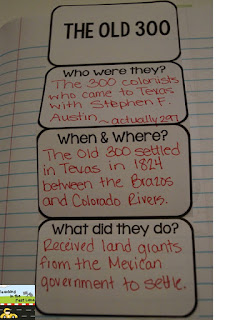 THE OLD 300
Who were they?
The 300 colonists
who came to Texas
with Stephen F.
Austin ~ actually 297
When & Where?
The Old 300 settled
in Texas in 1824
between the Brazos
and Colorado Rivers.
What did they do?
Received land grants
from the Mexican
government to settle.
Teaching
in the
Fast Lane